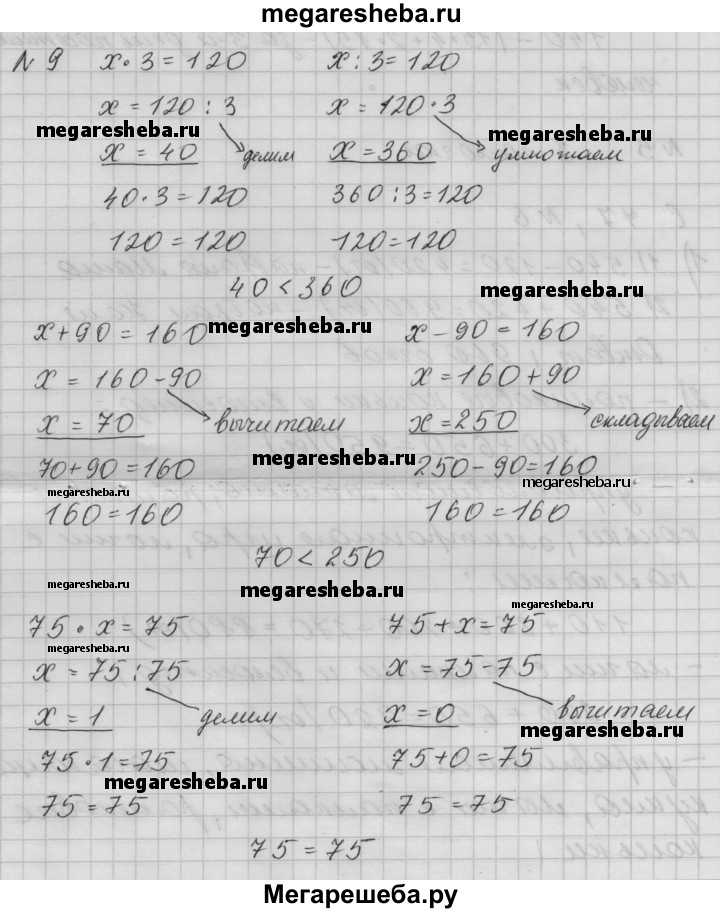 megaresheba.ru
№ 9 x · 3 = 120 x : 3 = 120
x = 120 : 3 x = 120 · 3
megaresheba.ru megaresheba.ru
x = 40 делим x = 360 умножаем
40 · 3 = 120 360 : 3 = 120
120 = 120 120 = 120
40 < 360 megaresheba.ru
x + 90 = 160 megaresheba.ru x - 90 = 160
x = 160 - 90 x = 160 + 90
x = 70 вычитаем x = 250 складываем
megaresheba.ru
70 + 90 = 160 250 - 90 = 160
megaresheba.ru megaresheba.ru
160 = 160 160 = 160
70 < 250
megaresheba.ru megaresheba.ru
megaresheba.ru
75 · x = 75 75 + x = 75
megaresheba.ru
x = 75 : 75 x = 75 - 75
x = 1 делим x = 0 вычитаем
megaresheba.ru
75 · 1 = 75 75 + 0 = 75
megaresheba.ru
75 = 75 75 = 75
75 = 75
Мегарешеба.ру